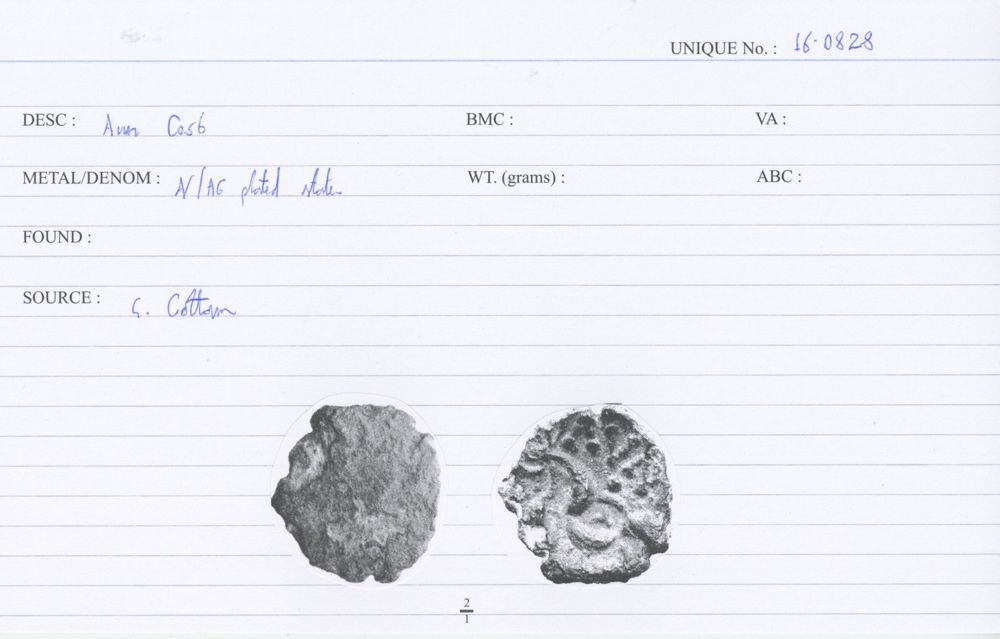 UNIQUE No. : 16·0828
DESC : Ann Cosb BMC : VA :
METAL/DENOM : N/AG plated stater WT. (grams) : ABC :
FOUND :
SOURCE : G. Cottam
2
1